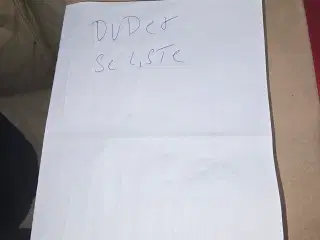 DVDer
Se Liste